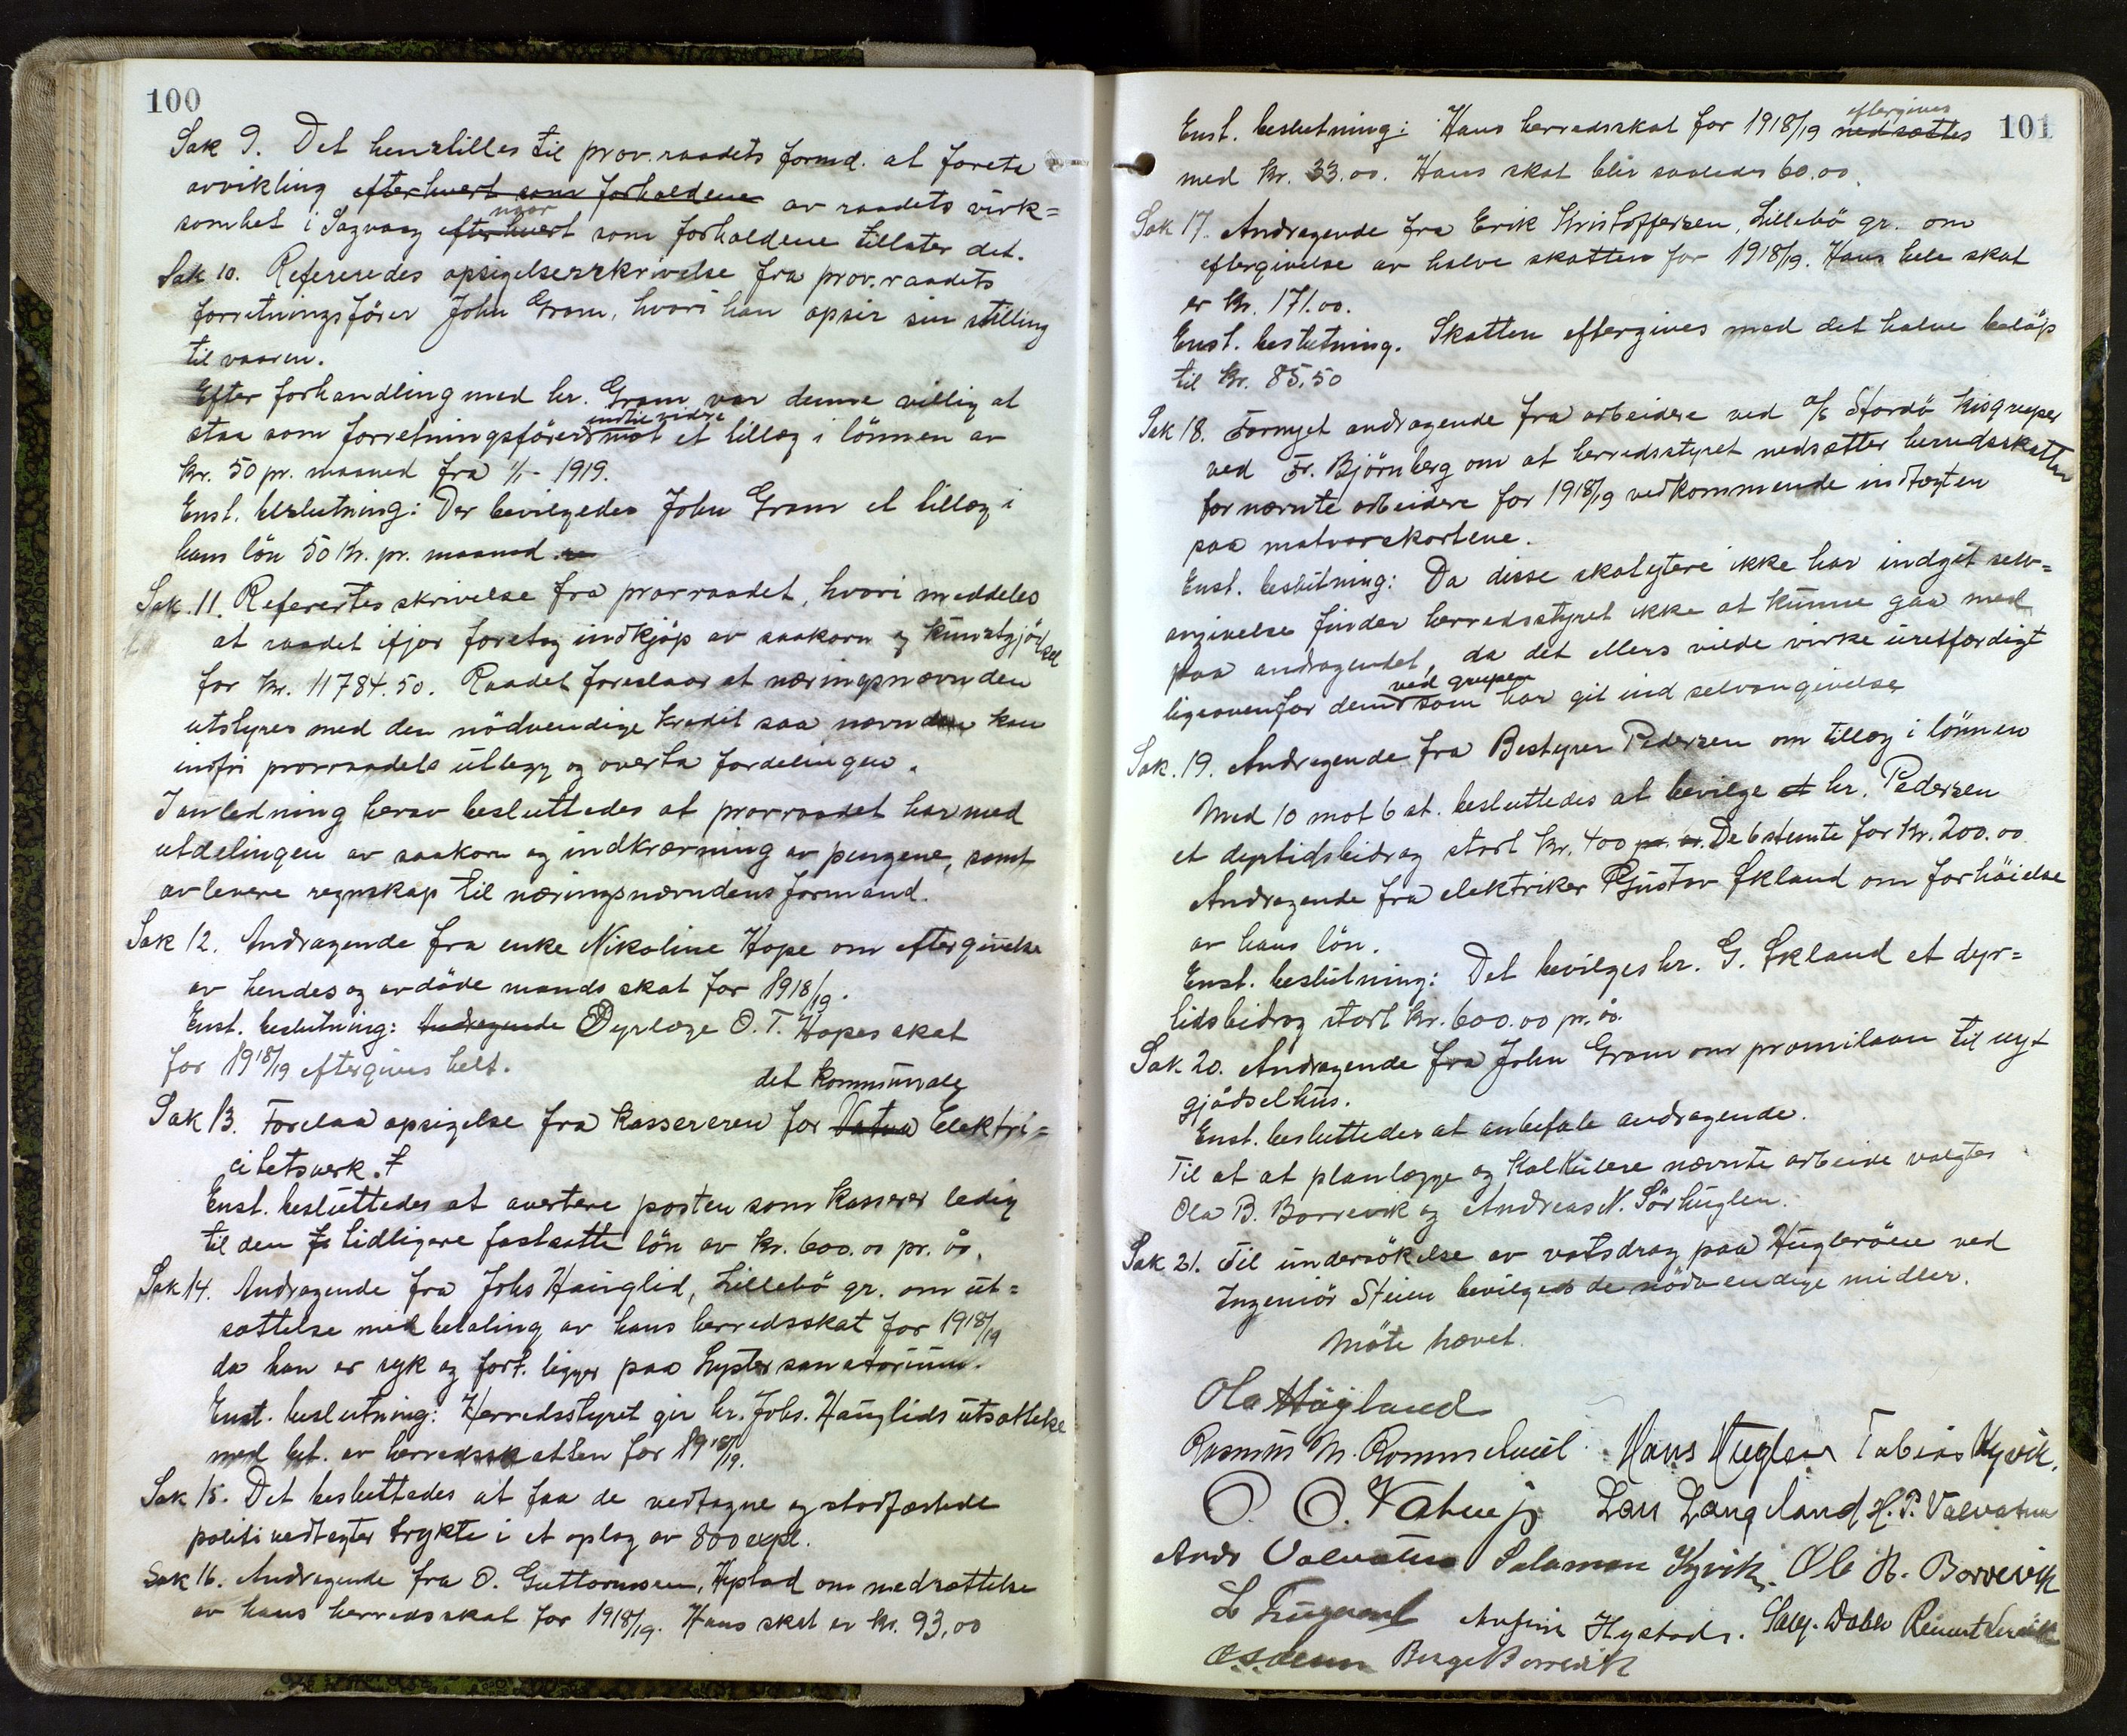 100
Sak 9. Det henstilles til prov. raadets formd. at foreta
avvikling efterhvert som forholdene av raadets virk=
somhet i Sagvaag efterhvert naar som forholdene tillater det.
Sak 10. Refereredes opsigelsesskrivelse fra prov. raadets
forretningsförer John Gram, hvori han opsir sin stilling
til vaaren.
Efter forhandling med hr. Gram var denne villig at
staa som forretningsförer indtil vidre mot et tillæg i lönnen av
kr. 50 pr. maaned fra 1/1- 1919.
Enst. beslutning: Der bevilgedes John Gram et tillæg i
hans lön 50 Kr. pr. maaned.
Sak. 11. Referertes skrivelse fra provraadet, hvori meddeles
at raadet ifjor foretog indkjöp av saakorn og kunstgjödsel
for kr. 11784.50. Raadet foreslaar at næringsnævnden
utstyres med den nödvendige kredit saa nævnden kan
indfri provraadets utlegg og overta fordelingen.
I anledning herav besluttedes at provraadet har med
utdelingen av saakorn og indkrævning av pengene, samt
avlevere regnskap til næringsnævndens formand.
Sak 12. Andragende fra enke Nikoline Hope om eftergivelse
av hendes og avdöde mands skat for 1918/19.
Enst. beslutning: Andragende Dyrlæge O. T. Hopes skat
for 1918/19 eftergives helt.
det kommunale
Sak 13. Forelaa opsigelse fra kassereren for Vatna Elektri=
citetsverk.
Enst. besluttedes at avertere posten som kasserer ledig
til den tidligere fastsatte lön av kr. 600.00 pr. år.
Sak 14. Andragende fra Johs Hauglid, Lillebö gr. om ut=
sættelse med betaling av hans herredsskat for 1918/19
da han er syk og fort. ligger paa Lyster sanatorium.
Enst. beslutning: Herredsstyret gir hr. Johs. Hauglids utsættelse
med bet. av herredsskatten for 1918/19.
Sak 15. Det besluttedes at faa de vedtagne og stadfæstede
politivedtegter trykte i et oplag av 800 expl.
Sak 16. Andragende fra O. Guttormsen, Hystad om nedsættelse
av hans herredsskat for 1918/19. Hans skat er kr. 93,00
101
Enst. beslutning: Hans herredsskat for 1918/19 nedsættes eftergives
med kr. 33.00. Hans skat blir saaledes 60.00.
Sak 17. Andragende fra Erik Kristoffersen, Lillebö gr. om
eftergivelse av halve skatten for 1918/19. Hans hele skat
er kr. 171.00.
Enst. beslutning. Skatten eftergives med det halve belöp
til kr. 85,50
Sak 18. Fornyet andragende fra arbeidere ved a/s Stordö kisgruper
ved Fr. Björnberg om at herredsstyret nedsætter herredsskatten
for nævnte arbeidere for 1918/19 vedkommende indtægten
paa matvarekortene.
Enst. beslutning: Da disse skatytere ikke har indgit selv=
angivelse finder herredsstyret ikke at kunne gaa med
paa andragendet, da det ellers vilde virke uretfærdigt
ligeovenfor dem ved grupen som har git ind selvangivelse
Sak. 19. Andragende fra Bestyrer Pedersen om tillæg i lönnen
Med 10 mot 6 st. besluttedes at bevilge et hr. Pedersen
et dyrtidsbidrag stort kr. 400 pr. år. De 6 stemte for kr. 200.00
Andragende fra elektriker Gustav Økland om forhöielse
av hans lön.
Enst. beslutning: Det bevilges hr. G. Økland et dyr=
tidsbidrag stort kr. 600.00 pr. år.
Sak 20. Andragende fra John Gram om promilaan til nyt
gjödselhus.
Enst. besluttedes at anbefale andragende.
Til at at planlægge og kalkulere nævnte arbeide valgtes
Ola B. Borrevik og Andreas N. Sörhuglen.
Sak 21. Til undersökelse av vatsdrag paa Huglaröen ved
Ingeniör Steien bevilgeds de nödvendige midler.
Möte hævet.
Ola Högland
Rasmus M. Rommetveit Hans Huglen Tobias Kyvik.
O. O. Vatne jr Lars Langeland H. P. Valvatna
Andr Valvatna Salamon Kyvik. Ole B. Borrevik
Anfin Hystad.
Børge Borrevik